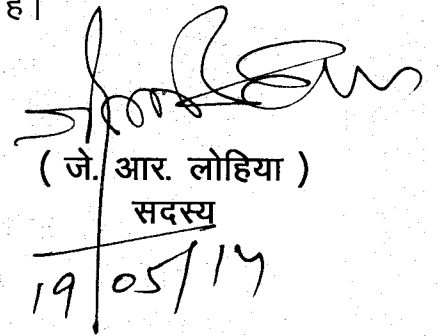 है।
( जे. आर. लोहिया )
सदस्य
19/05/14